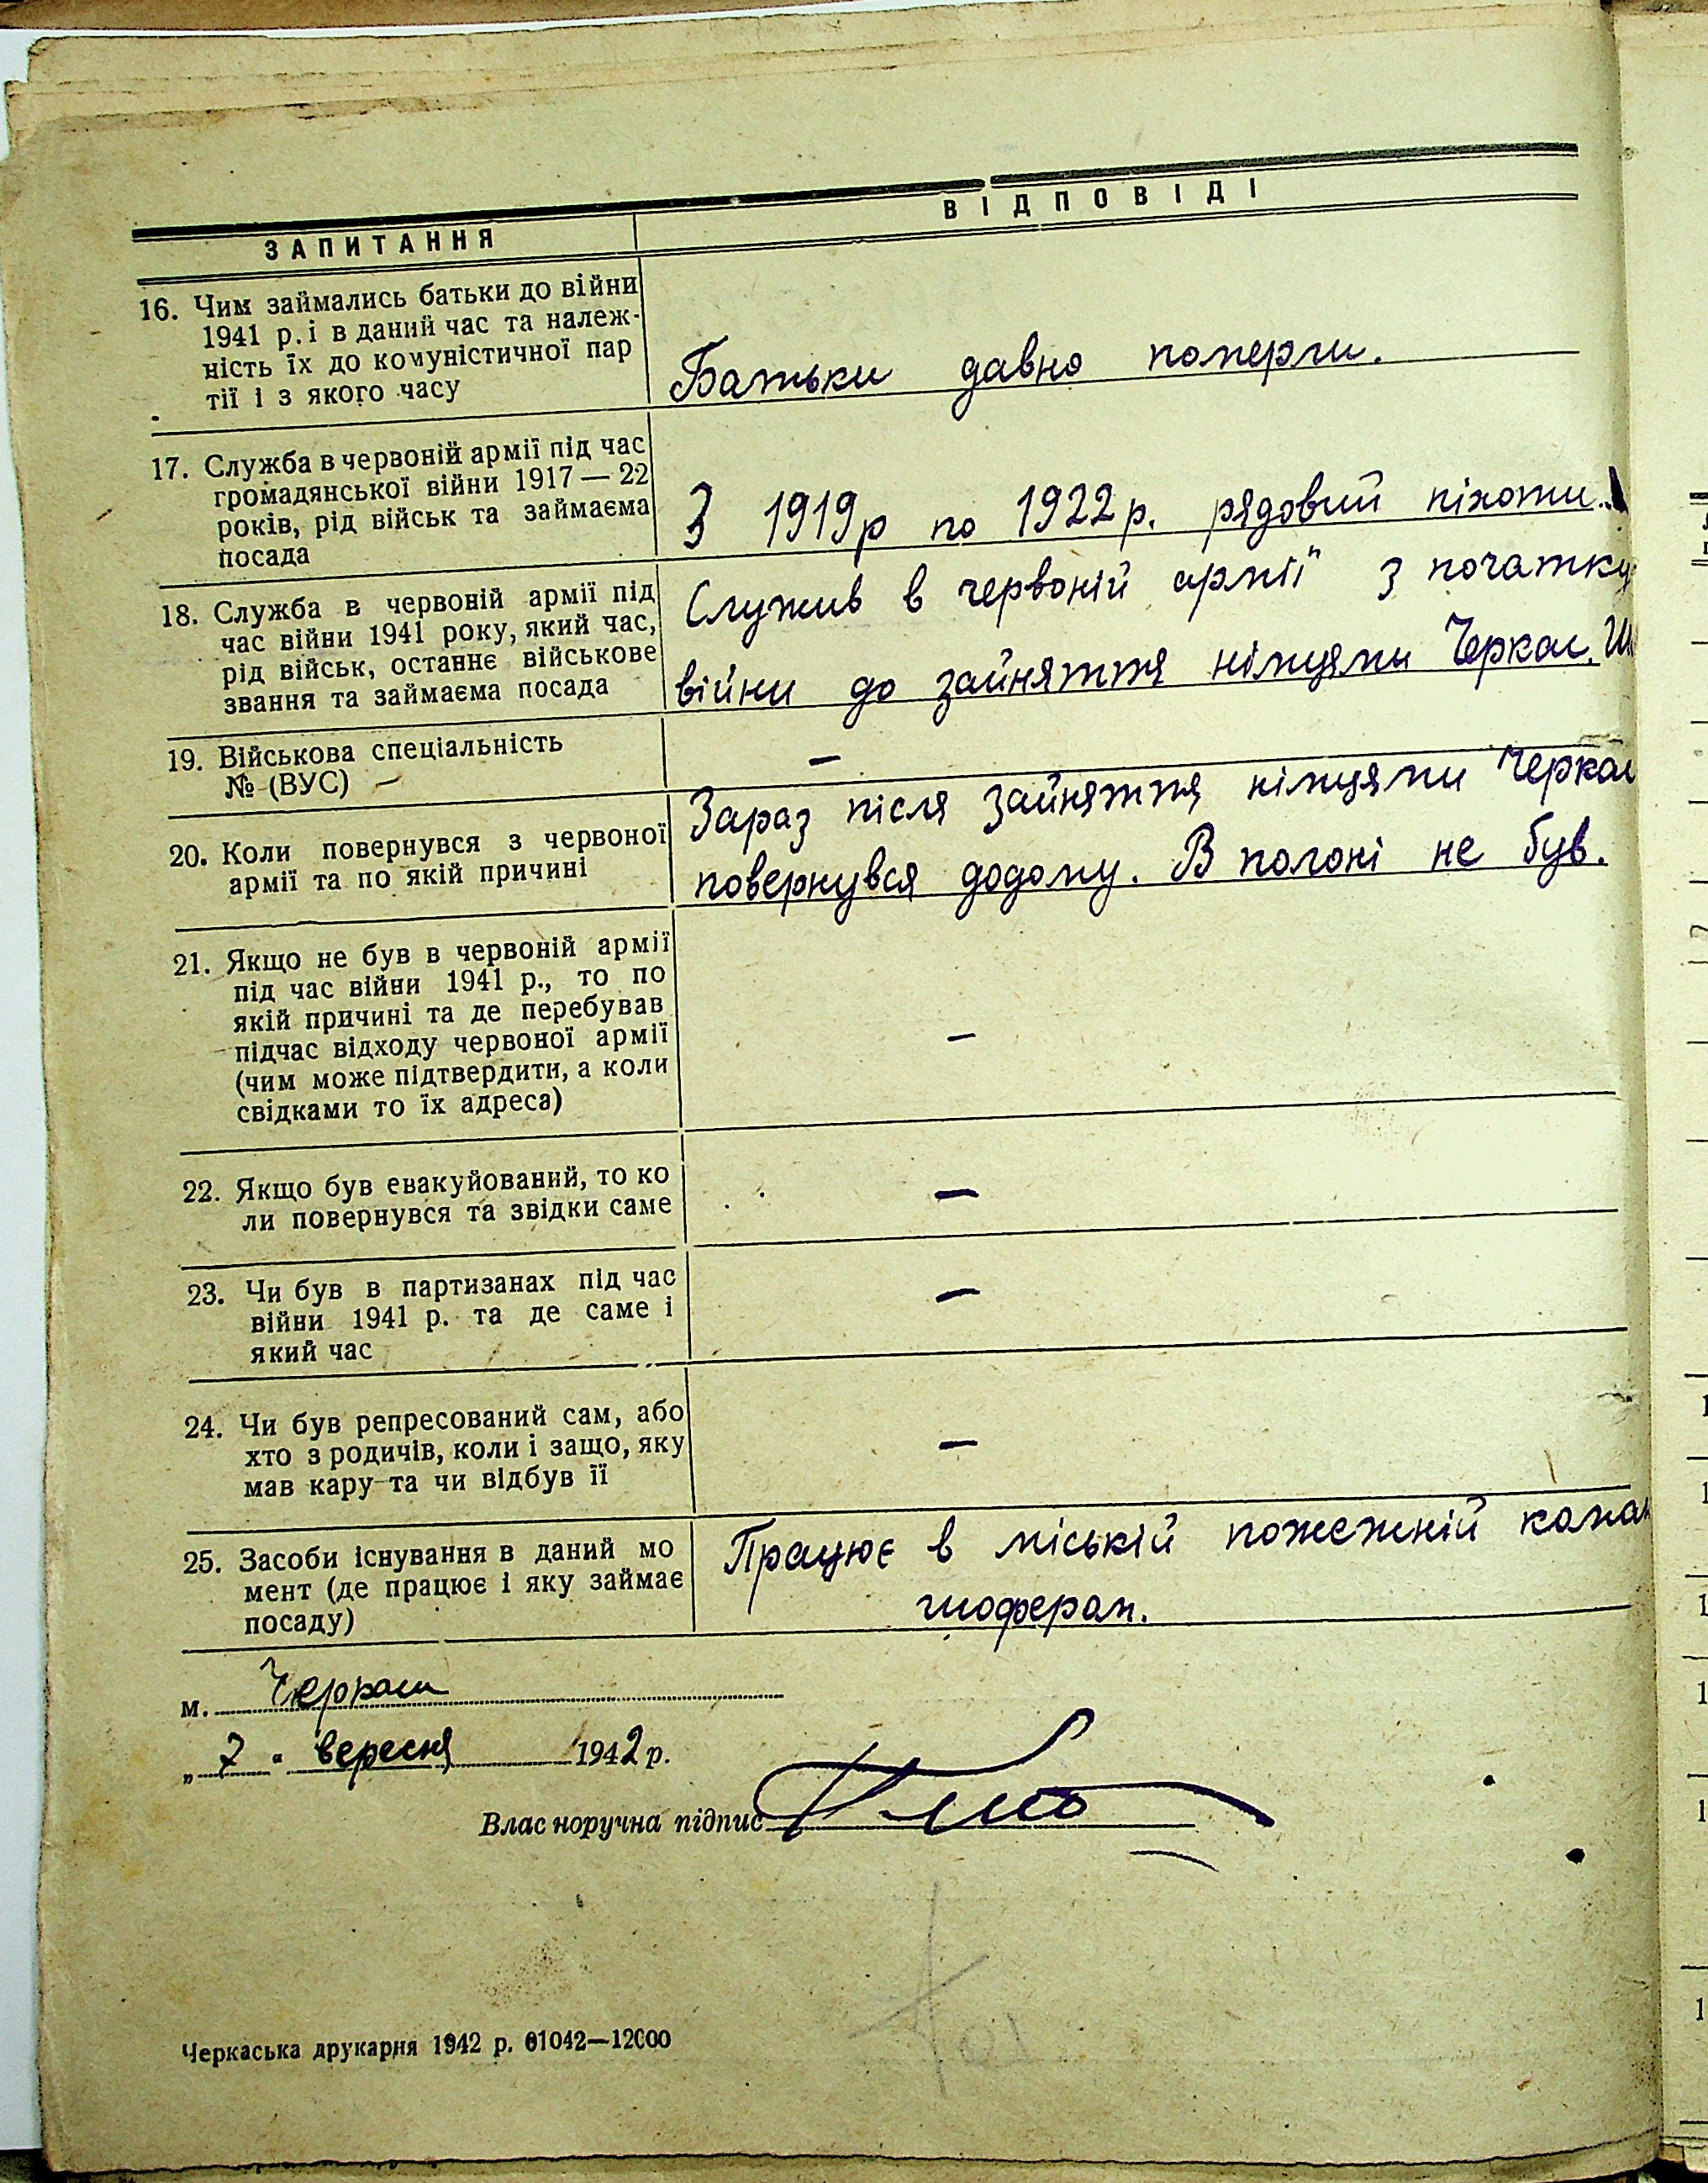 ЗАПИТАННЯ
ВІДПОВІДІ
16. Чим займались батьки до війни
1941 р. і в даний час та належ-
ність їх до комуністичної пар
тії і з якого часу
Батьки давно померли.
17. Служба в червоній армії під час
громадянської війни 1917 — 22
років, рід військ та займаєма
посада
З 1919р по 1922р. рядовий піхоти.
18. Служба в червоній армії під
час війни 1941 року, який час,
рід військ, останнє військове
звання та займаєма посада
Служив в червоній армії з початку
війни до зайняття німцями Черкас.
19. Військова спеціальність
№ (ВУС) —
—
20. Коли повернувся з червоної
армії та по якій причині
Зараз після зайняття німцями Черкас
повернувся додому. В полоні не був.
21. Якщо не був в червоній армії
під час війни 1941 р., то по
якій причині та де перебував
підчас відходу червоної армії
(чим може підтвердити, а коли
свідками то їх адреса)
—
22. Якщо був евакуйований, то ко
ли повернувся та звідки саме
—
23. Чи був в партизанах під час
війни 1941 р. та де саме і
який час
—
24. Чи був репресований сам, або
хто з родичів, коли і защо, яку
мав кару та чи відбув її
—
25. Засоби існування в даний мо
мент (де працює і яку займає
посаду)
Працює в міській пожежній коман
шофером.
м. Черкаси
„ 7 " вересня 1942 р.
Влас норучна підпис
Черкаська друкарня 1942 р. 01042—12000